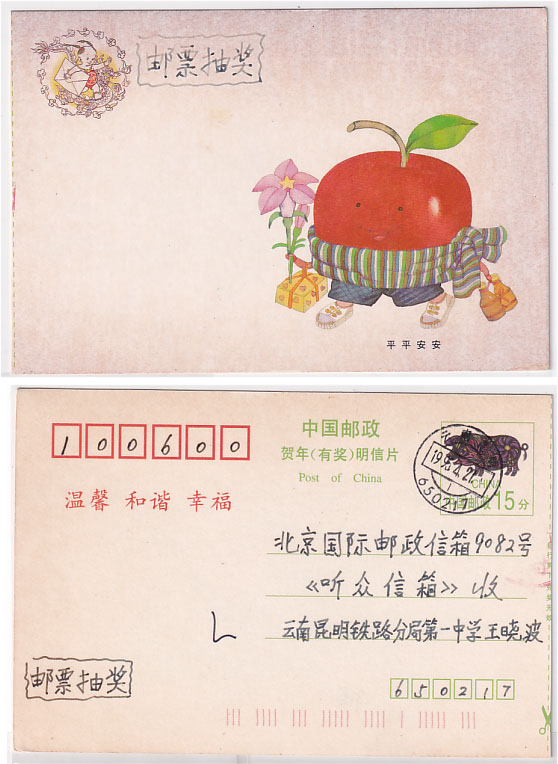 邮票抽奖
平平安安
100600
中国邮政
贺年(有奖)明信片
Post of China
温馨 和谐 幸福
CHINA
中国邮政 15分
650217
北京国际邮政信箱9082号
《听众信箱》收
云南昆明铁路分局第一中学王晓波
邮票抽奖
650217